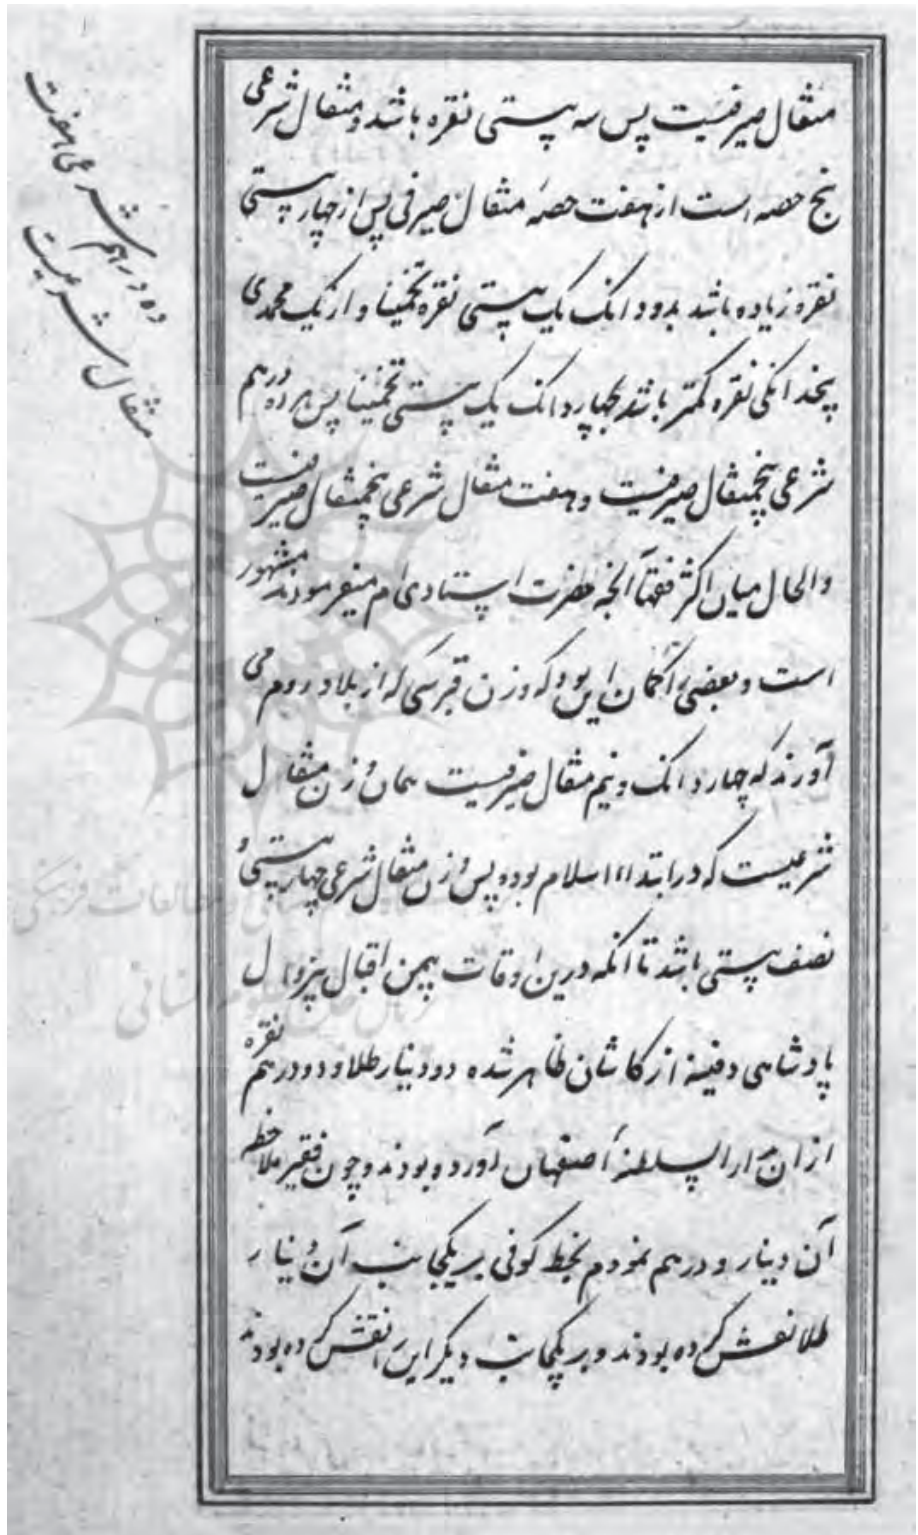 مثقال صیرفیست پس سه بیستی نقره باشد و مثقال شرعی
پنج حصه است از هفت حصهٔ مثقال صیرفی پس از چهار بیستی
نقره زیاده باشد بدو دانک یک بیستی نقره تخمینا و از یک محمدی
پنجدانکی نقره کمتر باشد بچهار دانک یک بیستی تخمینا پس هر ده درهم
شرعی پنجمثقال صیرفیست و هفت مثقال شرعی پنجمثقال صیرفیست
و الحال میان اکثر فقها آنچه حضرت استادی ام میفرمودند مشهور
است و بعضی را گمان این بود که وزن قبرسی که از بلاد روم می
آورند که چهار دانک و نیم مثقال صیرفیست همان وزن مثقال
شرعیست که در ابتداء اسلام بوده پس وزن مثقال شرعی چهار بیستی و
نصف بیستی باشد تا آنکه درین اوقات بیمن اقبال بیزوال
پادشاهی دفینه از کاشان ظاهر شده دو دینار طلا و دو درهم نقره
از ان بدار السلطنهٔ اصفهان آورده بودند و چون فقیر ملاحظه
آن دینار و درهم نمودم بخط کوفی بر یکجانب آن دینار
طلا نقش کرده بودند و بر یکجانب دیگر این نقش کرده بودند
ده درهم شرعی هفت
مثقال شرعیست